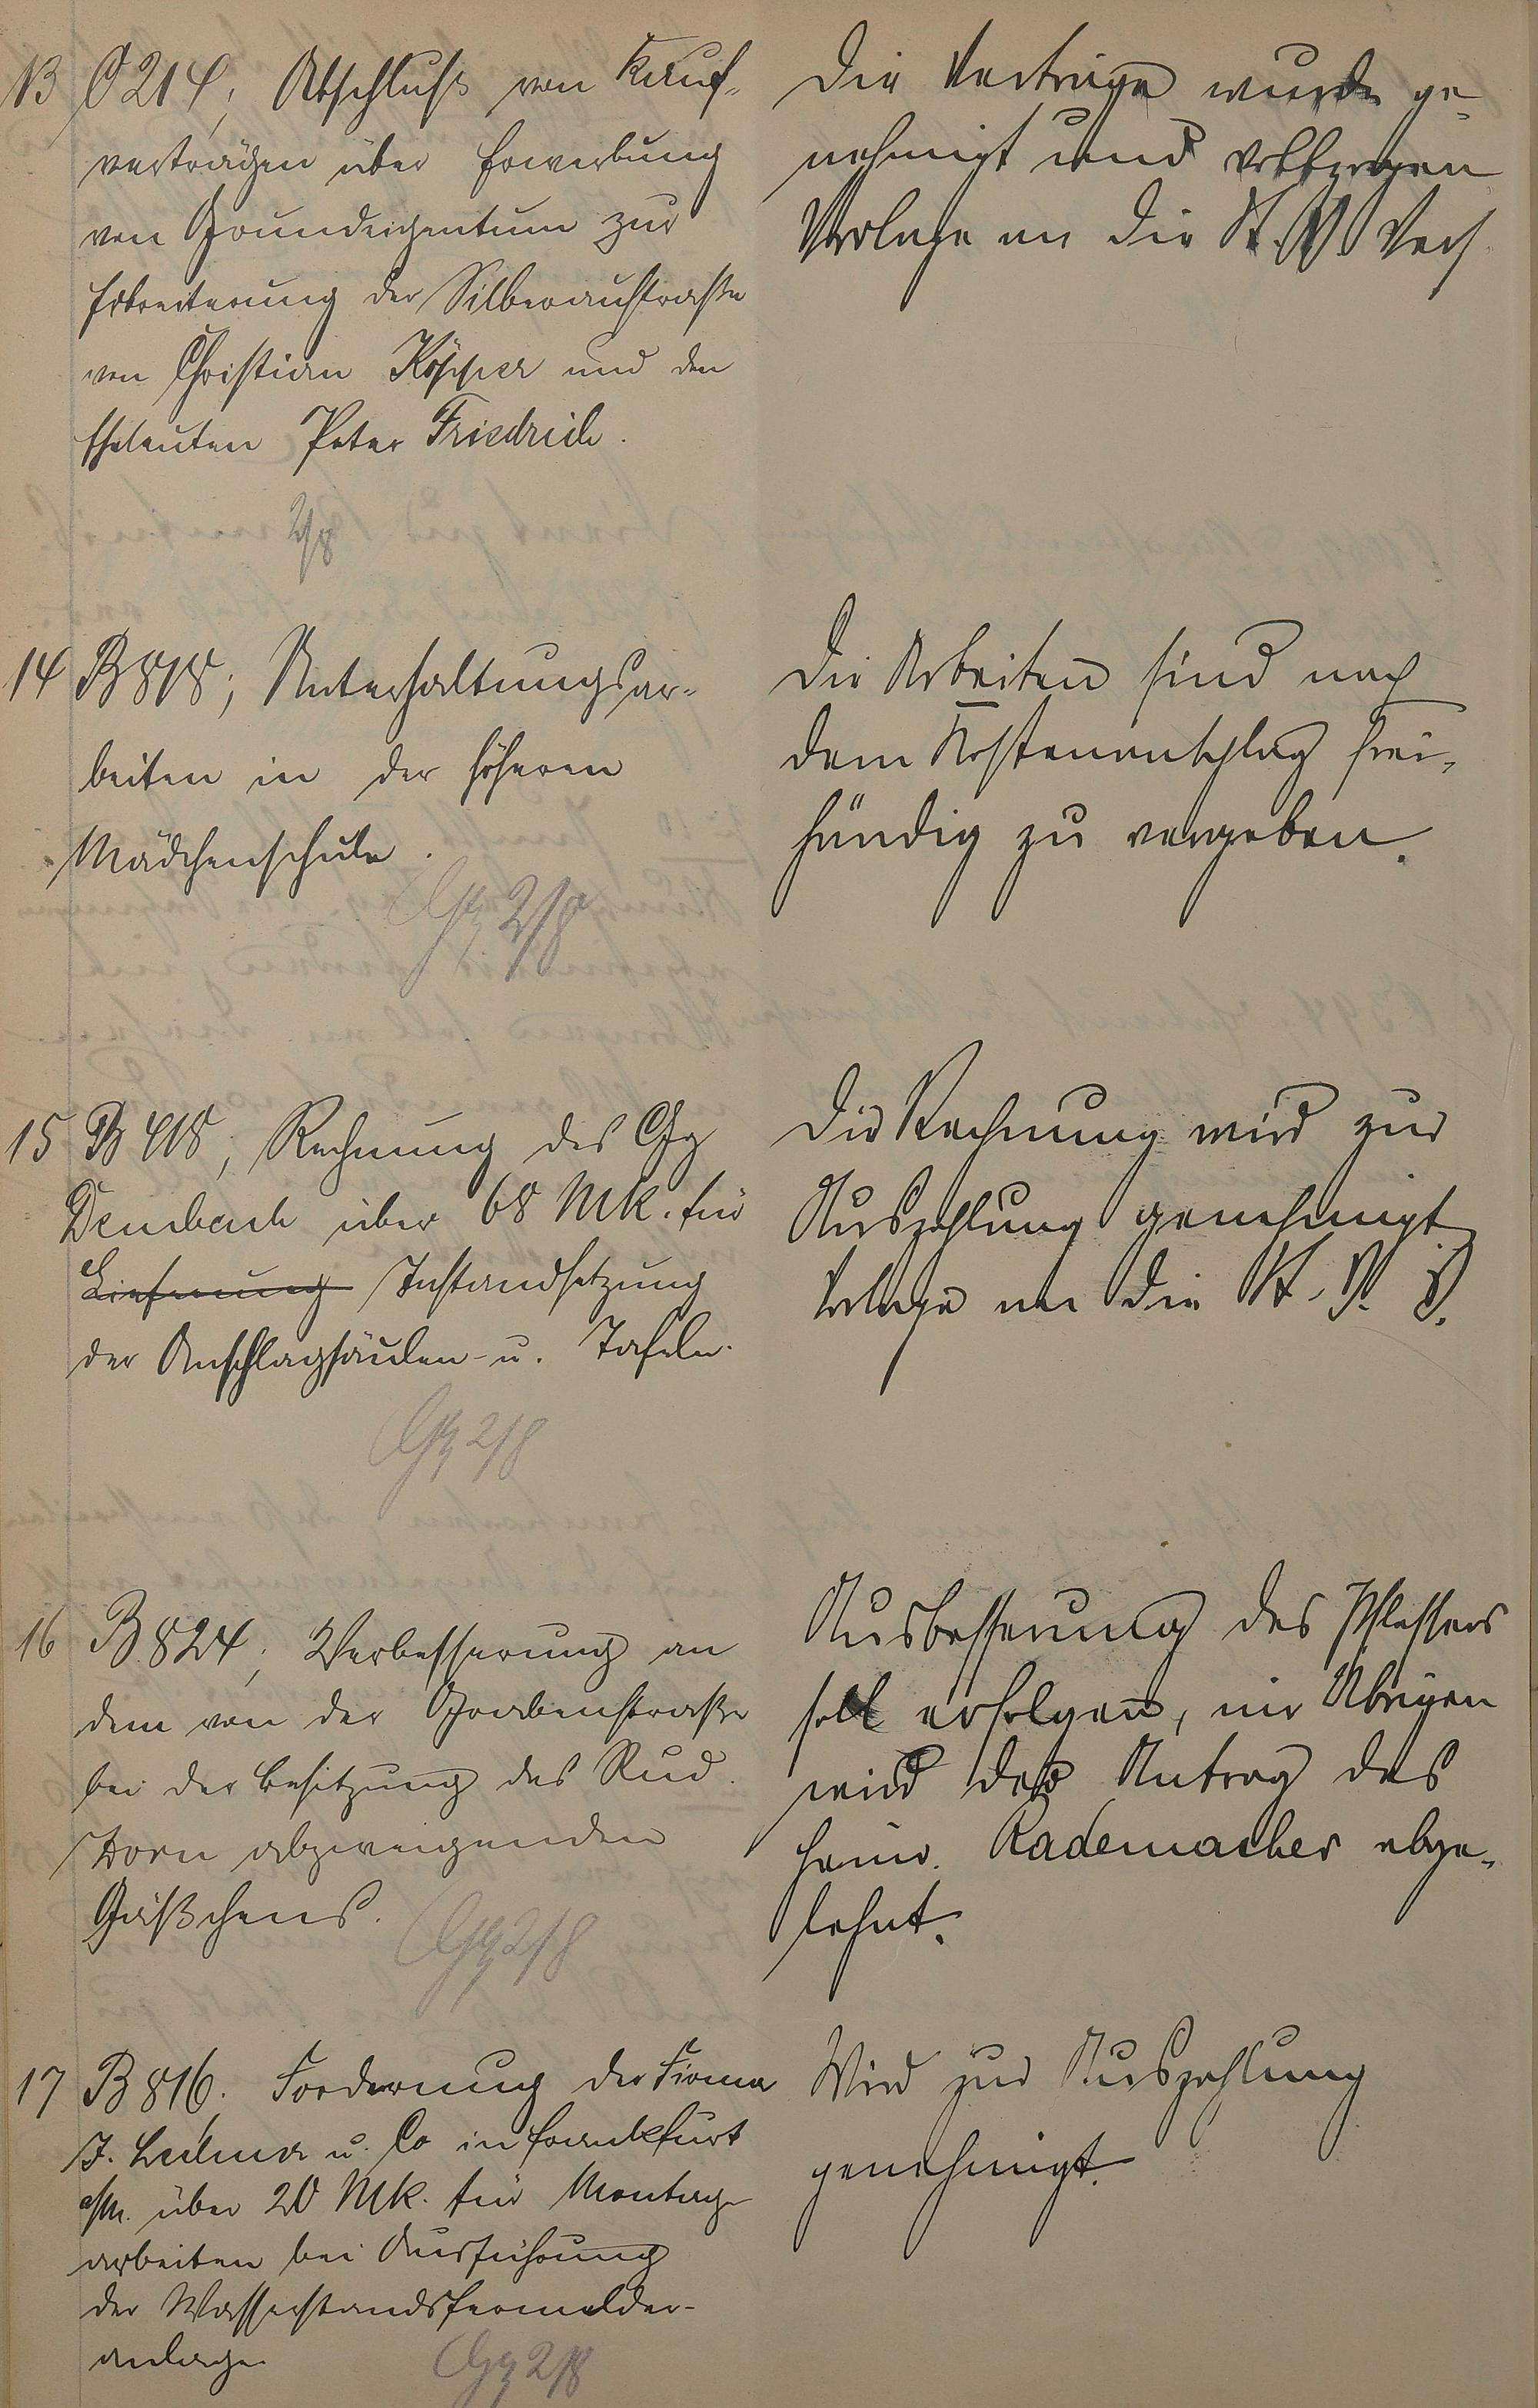 13 C 214; Abschluß von Kauf-
verträgen über Erwerbung
von Grundeigentum zur
Erbreiterung der Silberaustraße
von Christian Köpper und den
Eheleuten Peter Friedrich.
2/8
Die Verträge wurden ge-
nehmigt und vollzogen
Vorlage an die St. V. Vers.
14 B 818; Unterhaltungsar-
beiten in der höheren
Mädchenschule.
2/8
Die Arbeiten sind nach
dem Kostenanschlag frei-
händig zu vergeben.
15 B 418; Rechnung des Gg
Dembach über 68 Mk. für
Lieferung Instandsetzung
der Anschlagsäulen- u. Tafeln.
2/8
Die Rechnung wird zur
Auszahlung genehmigt
Vorlage an die St. V. V.
16 B 824; Verbesserung an
dem von der Grabenstraße
bei der Besitzung des Rud.
Dorn abzweigenden
Gäßchens.
2/8
Ausbesserung des Pflasters
soll erfolgen, im Übrigen
wird der Antrag des
Heinr. Rademacher abge-
lehnt.
17 B 816. Forderung der Firma
J. u. Co in Frankfurt
a/M. über 20 Mk. für Montage
arbeiten bei Ausführung
der Wasserstandsfernmelder-
anlage.
2/8
Wird zur Auszahlung
genehmigt.